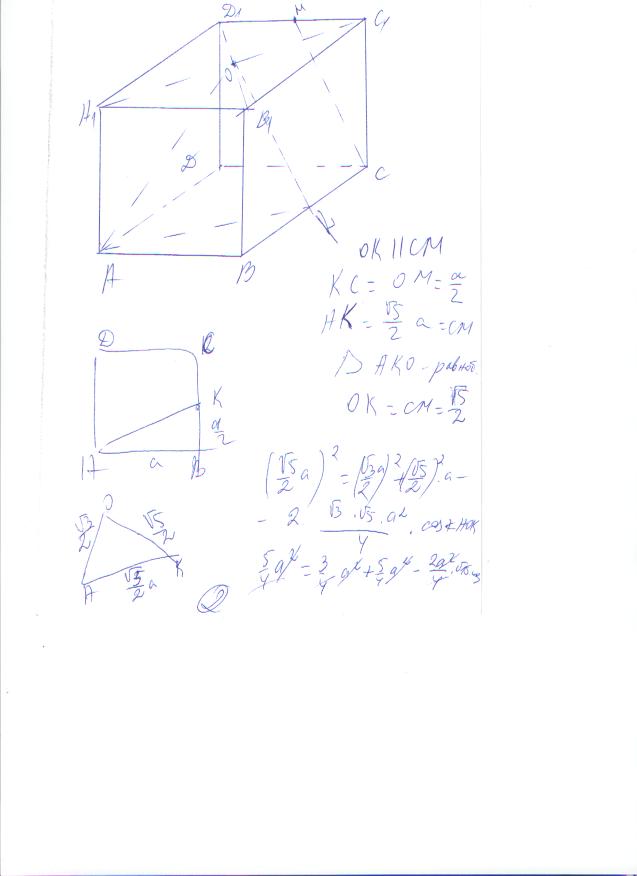 D₁ M C₁
O
A₁ B₁
D C
K
A B
OK || CM
KC = OM = a/2
AK = √5/2 a = CM
△ AKO - равноб.
OK = CM = √5/2
D
K
a/2
A a B
(√5/2 a)² = (√3/2 a)² + (√5/2)² · a -
- 2 √3 · √5 · a²/4 · cos∠AOK
O
√3/2 √5/2
A √5/2 a K
2
5/4 a² = 3/4 a² + 5/4 a² - 2a²/4 ·